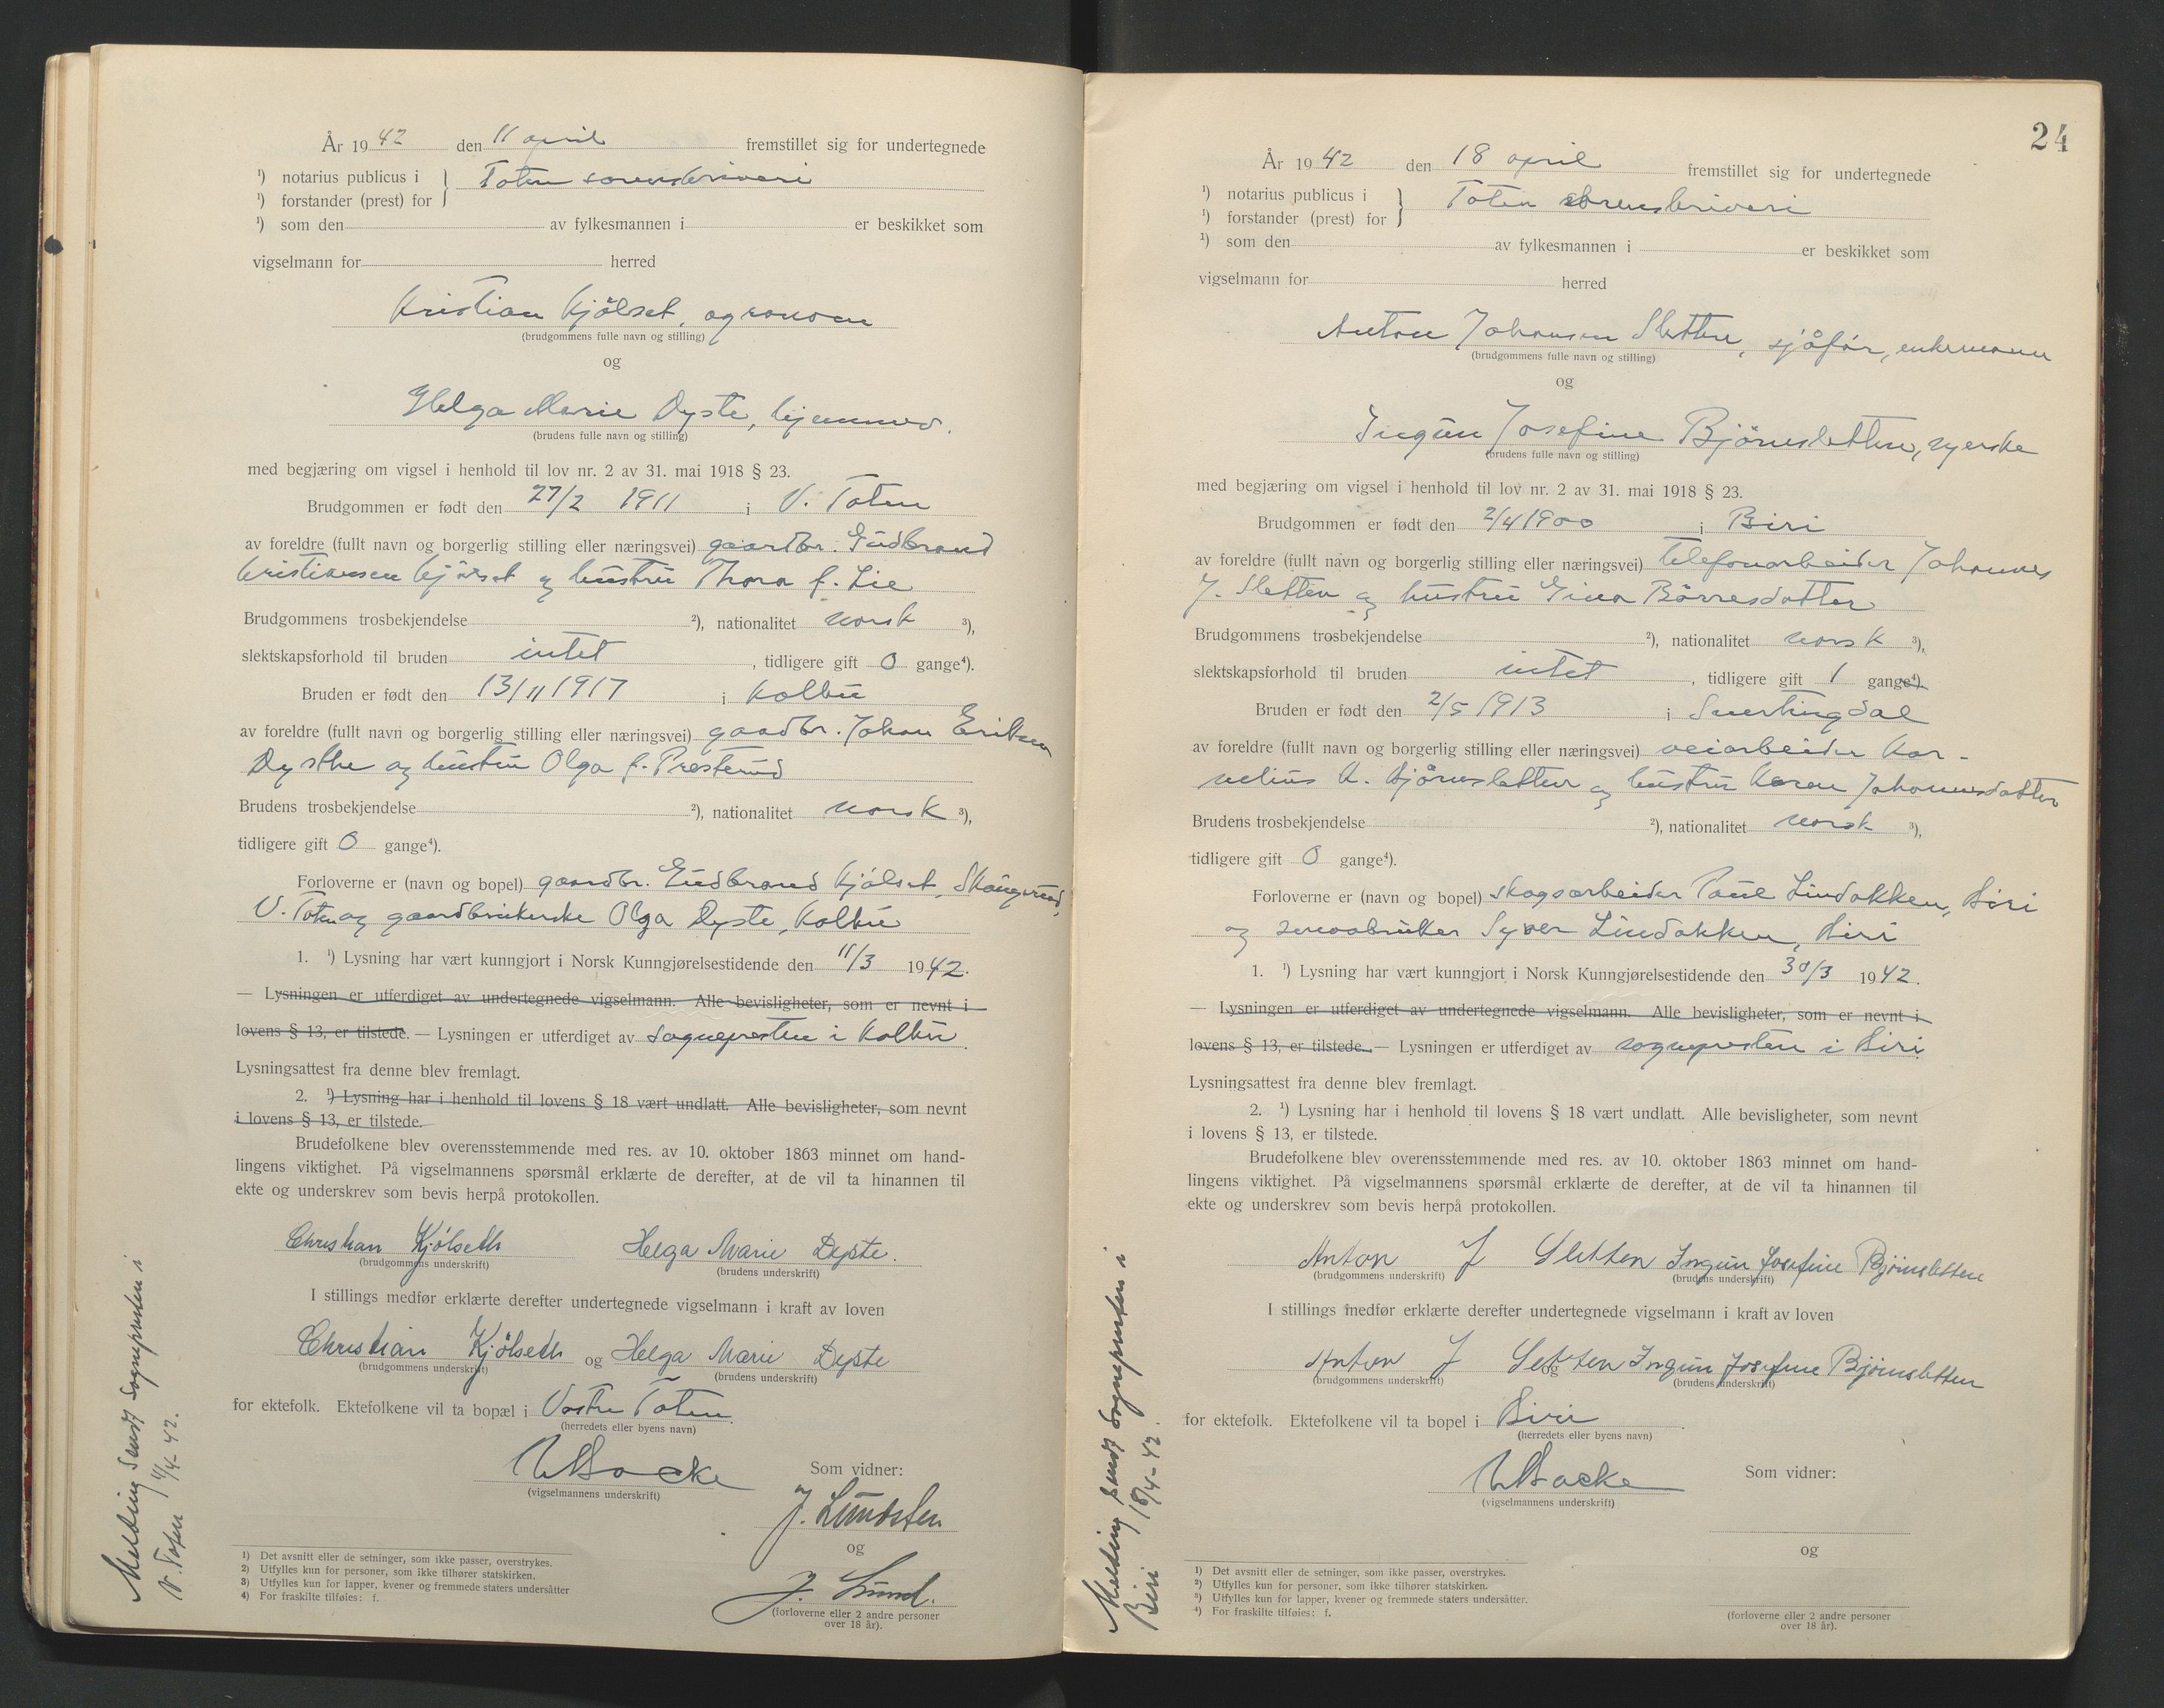 År 1942 den 11 april fremstillet sig for undertegnede
¹) notarius publicus i } Toten sorenskriveri
¹) forstander (prest) for
¹) som den av fylkesmannen i er beskikket som
vigselmann for herred
Kristian Kjölset, agronom
(brudgommens fulle navn og stilling)
og
Helga Marie Dyste, hjemmev.
(brudens fulle navn og stilling)
med begjæring om vigsel i henhold til lov nr. 2 av 31. mai 1918 § 23.
Brudgommen er født den 27/2 1911 i V. Toten
av foreldre (fullt navn og borgerlig stilling eller næringsvei) gaardbr. Gudbrand
Kristiansen Kjölset og hustru Thora f. Lie
Brudgommens trosbekjendelse ²), nationalitet norsk ³),
slektskapsforhold til bruden intet, tidligere gift 0 gange⁴).
Bruden er født den 13/11 1917 i Kolbu
av foreldre (fullt navn og borgerlig stilling eller næringsvei) gaardbr. Johan Eriksen
Dysthe og hustru Olga f. Presterud
Brudens trosbekjendelse ²), nationalitet norsk ³),
tidligere gift 0 gange⁴).
Forloverne er (navn og bopel) gaardbr. Gudbrand Kjölset, Skaugerud,
V. Toten og gaardbrukerske Olga Dyste, Kolbu
1. ¹) Lysning har vært kunngjort i Norsk Kunngjørelsestidende den 11/3 1942.
— Lysningen er utferdiget av undertegnede vigselmann. Alle bevisligheter, som er nevnt i
lovens § 13, er tilstede. — Lysningen er utferdiget av sognepresten i Kolbu.
Lysningsattest fra denne blev fremlagt.
2. ¹) Lysning har i henhold til lovens § 18 vært undlatt. Alle bevisligheter, som nevnt
i lovens § 13, er tilstede.
Brudefolkene blev overensstemmende med res. av 10. oktober 1863 minnet om hand-
lingens viktighet. På vigselmannens spørsmål erklærte de derefter, at de vil ta hinannen til
ekte og underskrev som bevis herpå protokollen.
Christian Kjölseth Helga Marie Dyste.
(brudgommens underskrift) (brudens underskrift)
I stillings medfør erklærte derefter undertegnede vigselmann i kraft av loven
Christian Kjölseth og Helga Marie Dyste
(brudgommens underskrift) (brudens underskrift)
for ektefolk. Ektefolkene vil ta bopæl i Vestre Toten.
(herredets eller byens navn)
Backe Som vidner:
(vigselmannens underskrift)
J. Lundsten
og
J. Lund.
(forloverne eller 2 andre personer
over 18 år).
1) Det avsnitt eller de setninger, som ikke passer, overstrykes.
2) Utfylles kun for personer, som ikke tilhører statskirken.
3) Utfylles kun for lapper, kvener og fremmede staters undersåtter
4) For fraskilte tilføies: f.
Melding sendt sognepresten i
V. Toten 11/4-42.
24
År 1942 den 18 april fremstillet sig for undertegnede
¹) notarius publicus i } Toten sorenskriveri
¹) forstander (prest) for
¹) som den av fylkesmannen i er beskikket som
vigselmann for herred
Anton Johansen Sletten, sjåför, enkemann
(brudgommens fulle navn og stilling)
og
Ingun Josefine Björnsletten, syerske
(brudens fulle navn og stilling)
med begjæring om vigsel i henhold til lov nr. 2 av 31. mai 1918 § 23.
Brudgommen er født den 2/4 1900 i Biri
av foreldre (fullt navn og borgerlig stilling eller næringsvei) telefonarbeider Johannes
J. Sletten og hustru Gina Börresdatter
Brudgommens trosbekjendelse ²), nationalitet norsk ³),
slektskapsforhold til bruden intet, tidligere gift 1 gange⁴).
Bruden er født den 2/5 1913 i Snertingdal
av foreldre (fullt navn og borgerlig stilling eller næringsvei) veiarbeider Kor-
nelius K. Björnsletten og hustru Karen Johannesdatter
Brudens trosbekjendelse ²), nationalitet norsk ³),
tidligere gift 0 gange⁴).
Forloverne er (navn og bopel) skogsarbeider Paul Lindokken, Biri
og smaabruker Syver Lindokken, Biri
1. ¹) Lysning har vært kunngjort i Norsk Kunngjørelsestidende den 30/3 1942.
— Lysningen er utferdiget av undertegnede vigselmann. Alle bevisligheter, som er nevnt i
lovens § 13, er tilstede. — Lysningen er utferdiget av sognepresten i Biri
Lysningsattest fra denne blev fremlagt.
2. ¹) Lysning har i henhold til lovens § 18 vært undlatt. Alle bevisligheter, som nevnt
i lovens § 13, er tilstede.
Brudefolkene blev overensstemmende med res. av 10. oktober 1863 minnet om hand-
lingens viktighet. På vigselmannens spørsmål erklærte de derefter, at de vil ta hinannen til
ekte og underskrev som bevis herpå protokollen.
Anton J Sletten Ingun Josefine Björnsletten
(brudgommens underskrift) (brudens underskrift)
I stillings medfør erklærte derefter undertegnede vigselmann i kraft av loven
Anton J Sletten og Ingun Josefine Björnsletten
(brudgommens underskrift) (brudens underskrift)
for ektefolk. Ektefolkene vil ta bopel i Biri.
(herredets eller byens navn)
Backe Som vidner:
(vigselmannens underskrift)
og
(forloverne eller 2 andre personer
over 18 år).
1) Det avsnitt eller de setninger, som ikke passer, overstrykes.
2) Utfylles kun for personer, som ikke tilhører statskirken.
3) Utfylles kun for lapper, kvener og fremmede staters undersåtter.
4) For fraskilte tilføies: f.
Melding sendt sognepresten i
Biri 18/4-42.